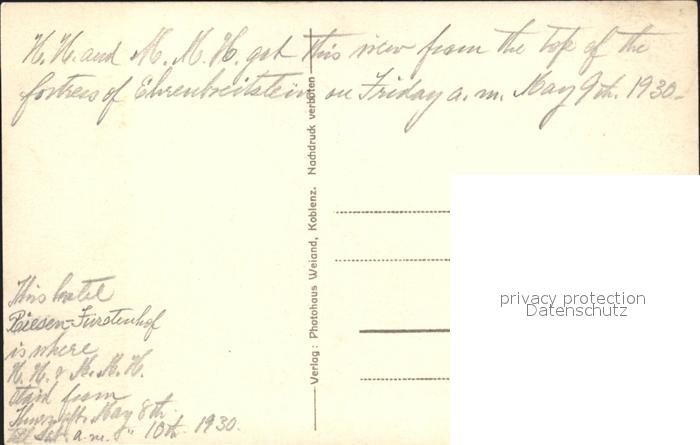 H. H. and M. M. H. got this view from the top of the
fortress of Ehrenbreitstein on Friday a. m. May 9th. 1930.
Verlag: Photohaus Weiand, Koblenz. Nachdruck verboten
This hotel
Riesen-Fürstenhof
is where
H. H. & M. M. H.
staid from
Thurs. night May 8th.
till Sat. a.m. " 10th. 1930.
privacy protection
Datenschutz